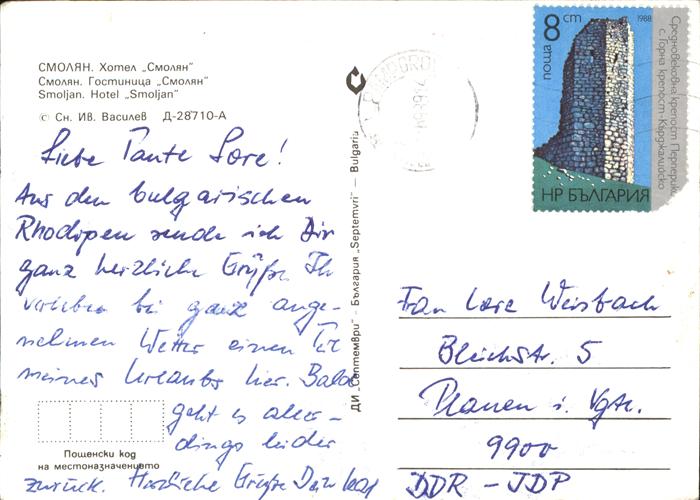 СМОЛЯН. Хотел „Смолян"
Смолян. Гостиница „Смолян"
Smoljan. Hotel „Smoljan"
© Сн. Ив. Василев Д-28710-А
Liebe Tante Lore!
Aus den bulgarischen
Rhodopen sende ich Dir
ganz herzliche Grüße. Ich
verlebe bei ganz ange-
nehmen Wetter einen Teil
meines Urlaubs hier. Bald
geht es aller-
dings leider
zurück. Herzliche Grüße Dein
Пощенски код
на местоназначението
ДИ „Септември" - България „Septemvri" - Bulgaria
поща 8 ст 1988
Средновековна крепост Перперик
с. Горна крепост-Кърджалийско
НР БЪЛГАРИЯ
Frau Lore Weisbach
Bleichstr. 5
Plauen i. Vgtl.
9900
DDR - JDP